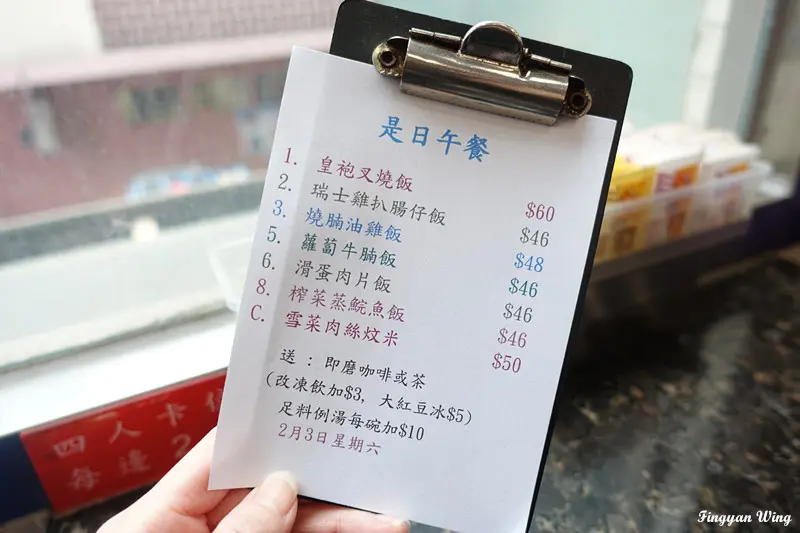 是日午餐
1. 皇袍叉燒飯 $60
2. 瑞士雞扒腸仔飯 $46
3. 燒腩油雞飯 $48
5. 蘿蔔牛腩飯 $46
6. 滑蛋肉片飯 $46
8. 榨菜蒸鯇魚飯 $46
C. 雪菜肉絲炆米 $50
送 : 即磨咖啡或茶
(改凍飲加$3, 大紅豆冰$5)
足料例湯每碗加$10
2月3日星期六
四人卡
每邊2
Fingyan Wing